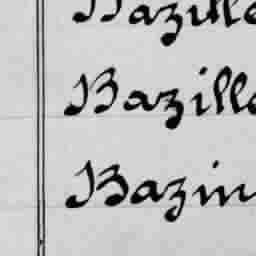 Bazille
Bazille
Bazin